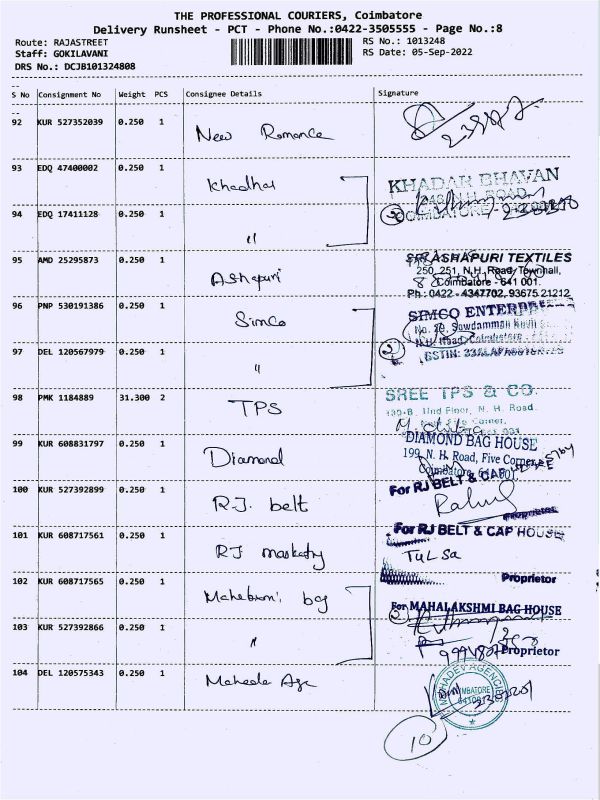 THE PROFESSIONAL COURIERS, Coimbatore
Delivery Runsheet - PCT - Phone No.:0422-3505555 - Page No.:8
Route: RAJASTREET
RS No.: 1013248
Staff: GOKILAVANI
RS Date: 05-Sep-2022
DRS No.: DCJB101324808
S No Consignment No Weight PCS Consignee Details Signature
92 KUR 527352039 0.250 1 New Romance
93 EDQ 47400002 0.250 1 Khadhar
KHADAR BHAVAN
N.H. ROAD
COIMBATORE
94 EDQ 17411128 0.250 1 "
2
95 AMD 25295873 0.250 1 Ashapuri
SRI ASHAPURI TEXTILES
250, 251, N.H. Road, Townhall,
Coimbatore - 641 001.
Ph : 0422 - 4347702, 93675 21212
96 PNP 530191386 0.250 1 Simco
SIMCO ENTERPRISES
N.H. Road, Coimbatore
97 DEL 120567979 0.250 1 "
2
GSTIN:
98 PMK 1184889 31.300 2 TPS
SREE TPS & CO.
IInd Floor, N. H. Road.
Corner,
99 KUR 608831797 0.250 1 Diamond
DIAMOND BAG HOUSE
199, N. H. Road, Five Corner,
Coimbatore, 641 001.
100 KUR 527392899 0.250 1 R.J. belt
For RJ BELT & CAP HOUSE
Rahul
Proprietor
101 KUR 608717561 0.250 1 RJ
For RJ BELT & CAP HOUSE
TULSA
Proprietor
102 KUR 608717565 0.250 1 bag
For MAHALAKSHMI BAG HOUSE
2
103 KUR 527392866 0.250 1 "
Proprietor
104 DEL 120575343 0.250 1
MAHADEV AGENCIES
COIMBATORE
10